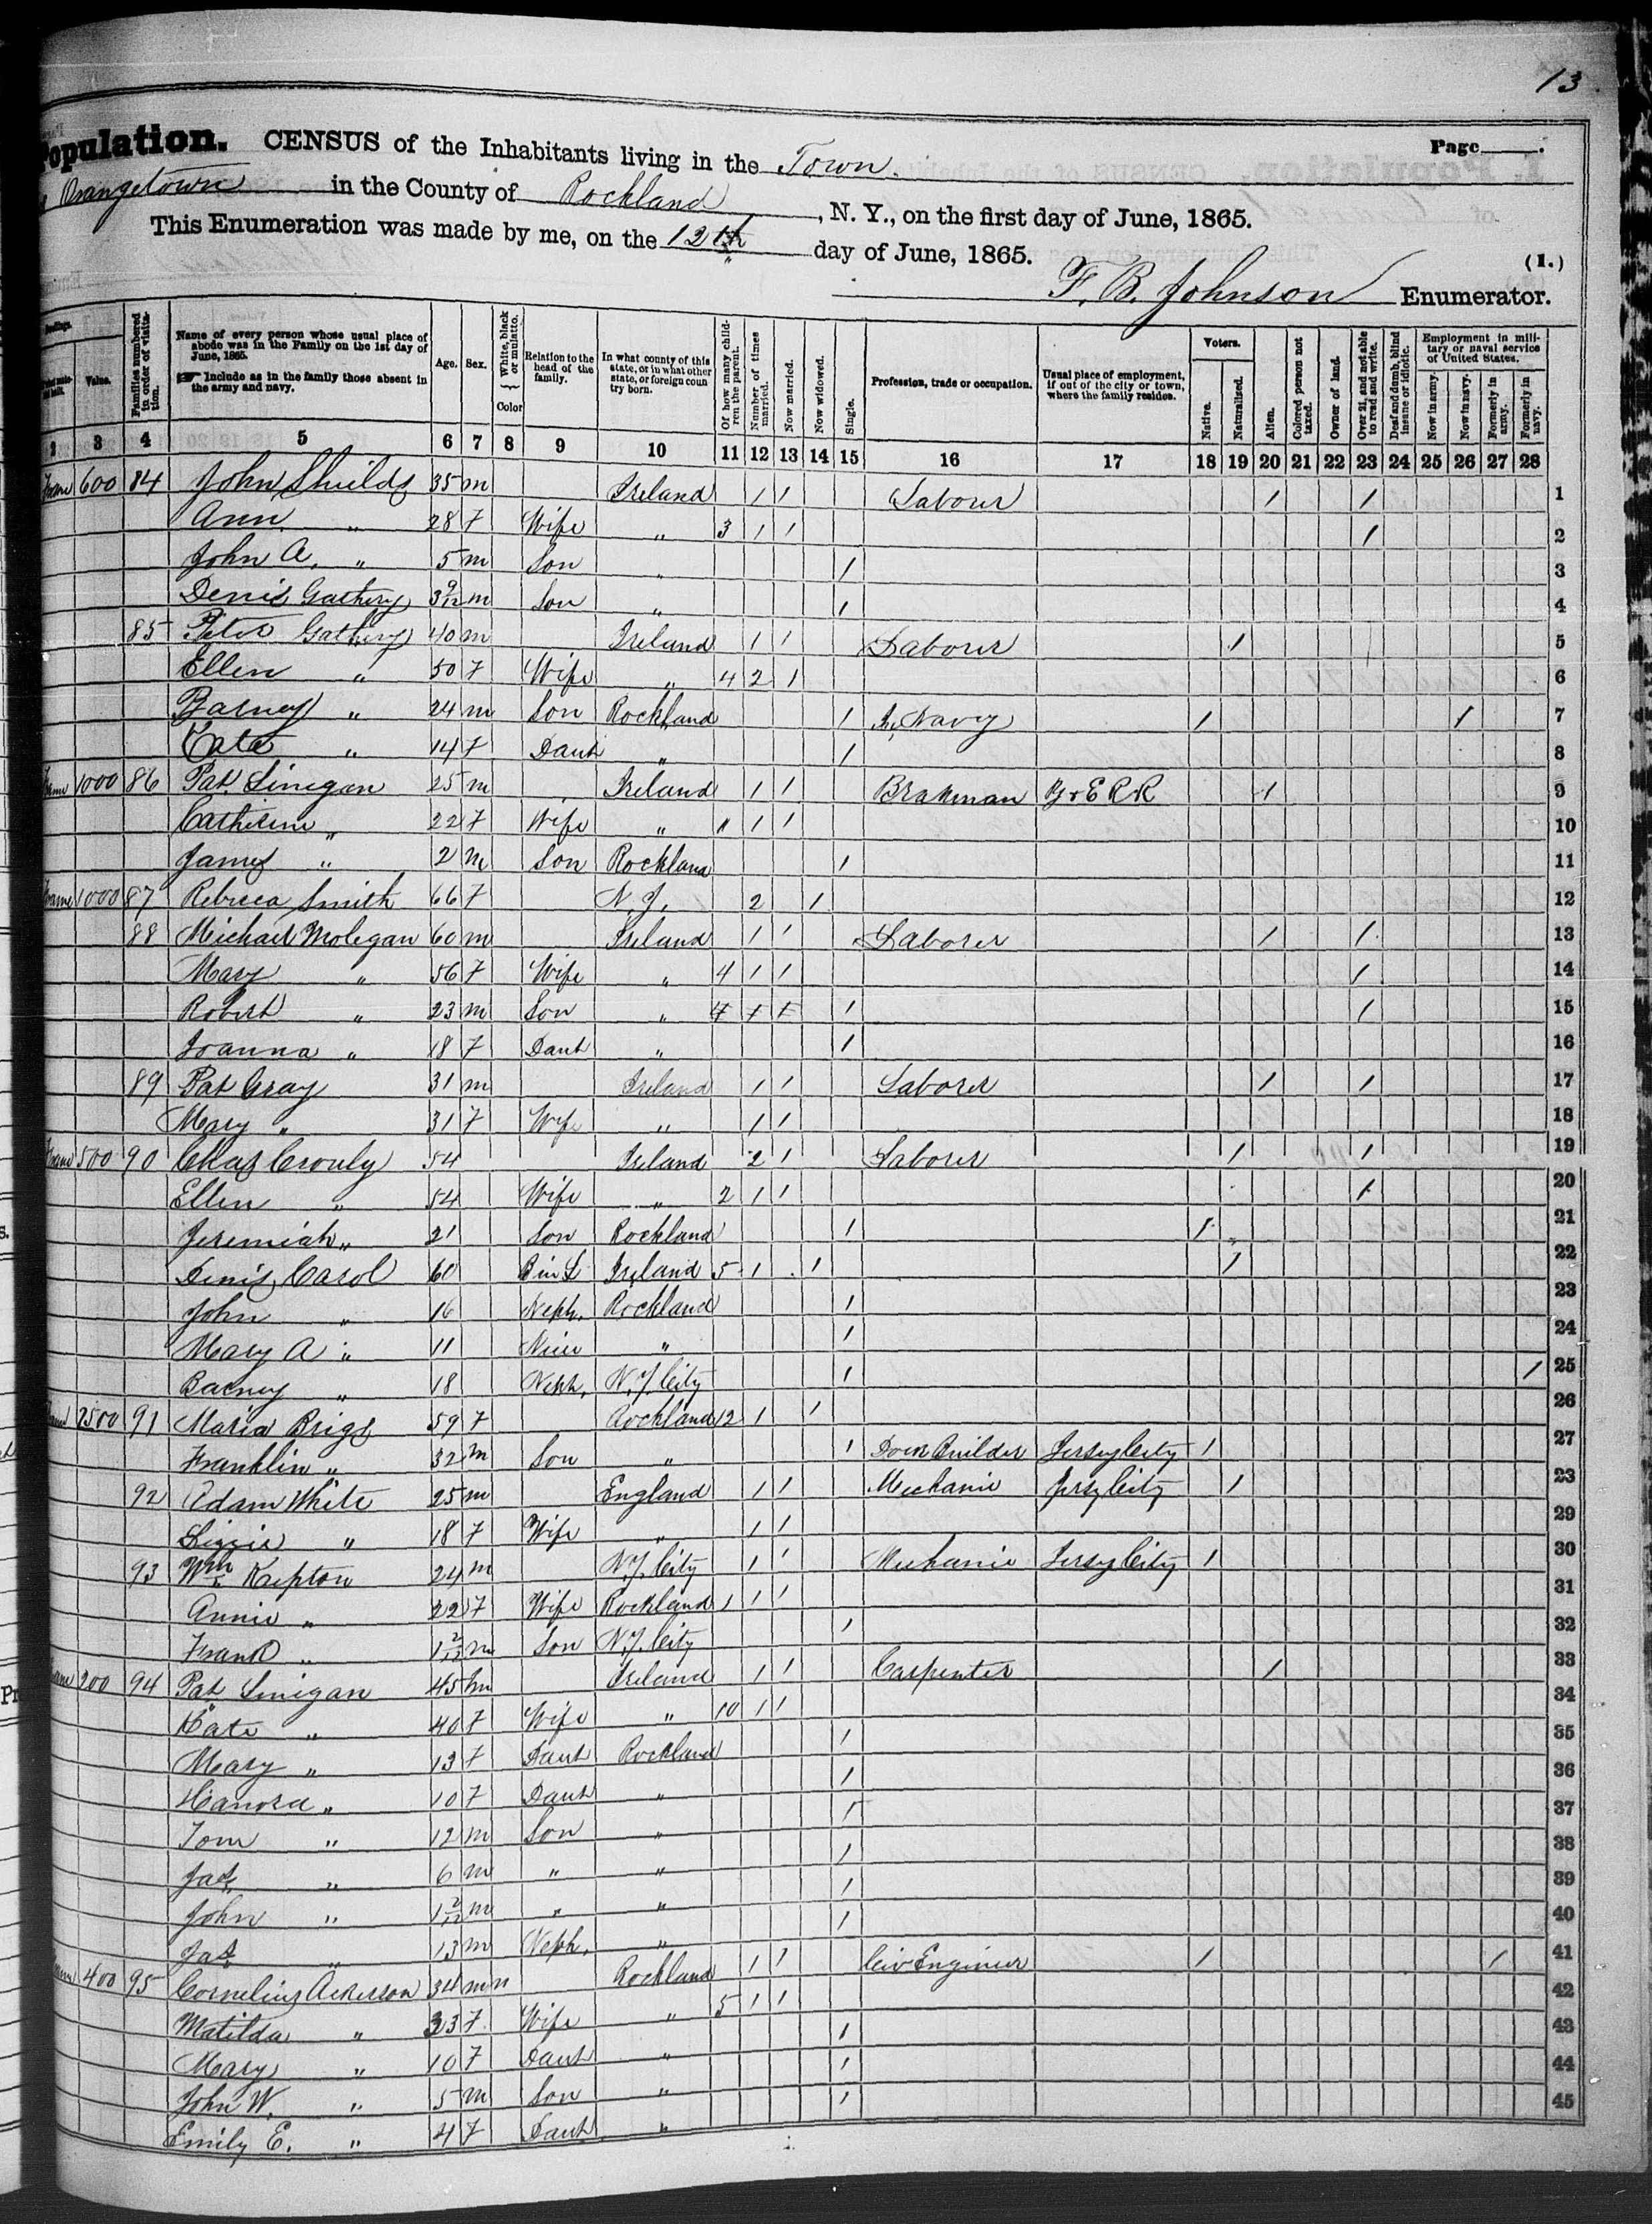 13
Population. CENSUS of the Inhabitants living in the Town.
Page
Orangetown in the County of Rockland, N. Y., on the first day of June, 1865.
This Enumeration was made by me, on the 12th day of June, 1865.
(1.)
F. B. Johnson Enumerator.
Value. Families numbered in order of visitation. Name of every person whose usual place of abode was in the Family on the 1st day of June, 1865. ☞ Include as in the family those absent in the army and navy. Age. Sex. White, black or mulatto. Color Relation to the head of the family. In what county of this state, or in what other state, or foreign coun try born. Of how many children the parent. Number of times married. Now married. Now widowed. Single. Profession, trade or occupation. Usual place of employment, if out of the city or town, where the family resides. Voters. Native. Naturalized. Alien. Colored person not taxed. Owner of land. Over 21, and not able to read and write. Deaf and dumb, blind insane or idiotic. Employment in military or naval service of United States. Now in army. Now in navy. Formerly in army. Formerly in navy.
2 3 4 5 6 7 8 9 10 11 12 13 14 15 16 17 18 19 20 21 22 23 24 25 26 27 28
600 84 John Shields 35 m Ireland 1 1 Labour 1 1 1
Ann " 28 F Wife " 3 1 1 1 2
John A. " 5 m Son " 1 3
Denis Gathery 3 9/12 m Son " 1 4
85 Peter Gathery 40 m Ireland 1 1 Laborer 1 5
Ellen " 50 F Wife " 4 2 1 6
Barney " 24 m Son Rockland 1 In Navy 1 1 7
Cate " 14 F Daut " 1 8
1000 86 Pat Linegan 25 m Ireland 1 1 Brakman 1 9
Catherine " 22 F Wife " 1 1 1 10
James " 2 m Son Rockland 1 11
1000 87 Rebecca Smith 66 F N. J. 2 1 12
88 Michael Molegan 60 m Ireland 1 1 Laborer 1 1 13
Mary " 56 F Wife " 4 1 1 1 14
Robert " 23 m Son " 1 1 15
Joanna " 18 F Daut " 1 16
89 Pat Gray 31 m Ireland 1 1 Laborer 1 1 17
Mary " 31 F Wife " 1 1 18
500 90 Chas Crouly 54 Ireland 2 1 Laborer 1 1 19
Ellen " 54 Wife " 2 1 1 1 20
Jeremiah " 21 Son Rockland 1 1 21
Denis Carol 60 B in L Ireland 5 1 1 1 22
John " 16 Neph. Rockland 1 23
Mary A " 11 Niece " 1 24
Barney " 18 Neph. N.Y. City 1 1 25
2500 91 Maria Brigs 59 F Rockland 12 1 1 26
Franklin " 32 m Son " 1 Builder Jersey City 1 27
92 Adam White 25 m England 1 1 Mechanic Jersy City 1 28
Lizzie " 18 F Wife " 1 1 29
93 Wm Kepton 24 m N.Y. City 1 1 Mechanic Jersy City 1 30
Annie " 22 F Wife Rockland 1 1 1 31
Frank " 1 2/12 m Son N.Y. City 1 32
200 94 Pat Linigan 45 m Ireland 1 1 Carpenter 1 33
Kate " 40 F Wife " 10 1 1 34
Mary " 13 F Daut Rockland 1 35
Hanora " 10 F Daut " 1 36
Tom " 12 m Son " 1 37
Jas. " 6 m " " 1 38
John " 1 2/12 m " " 1 39
Jas. " 13 m Neph. " 1 40
400 95 Cornelius Ackerson 34 m Rockland 1 1 Civ Enginer 1 1 41
Matilda " 33 F Wife " 5 1 1 42
Mary " 10 F Daut " 1 43
John W. " 5 m Son " 1 44
Emily E. " 4 F Daut " 1 45